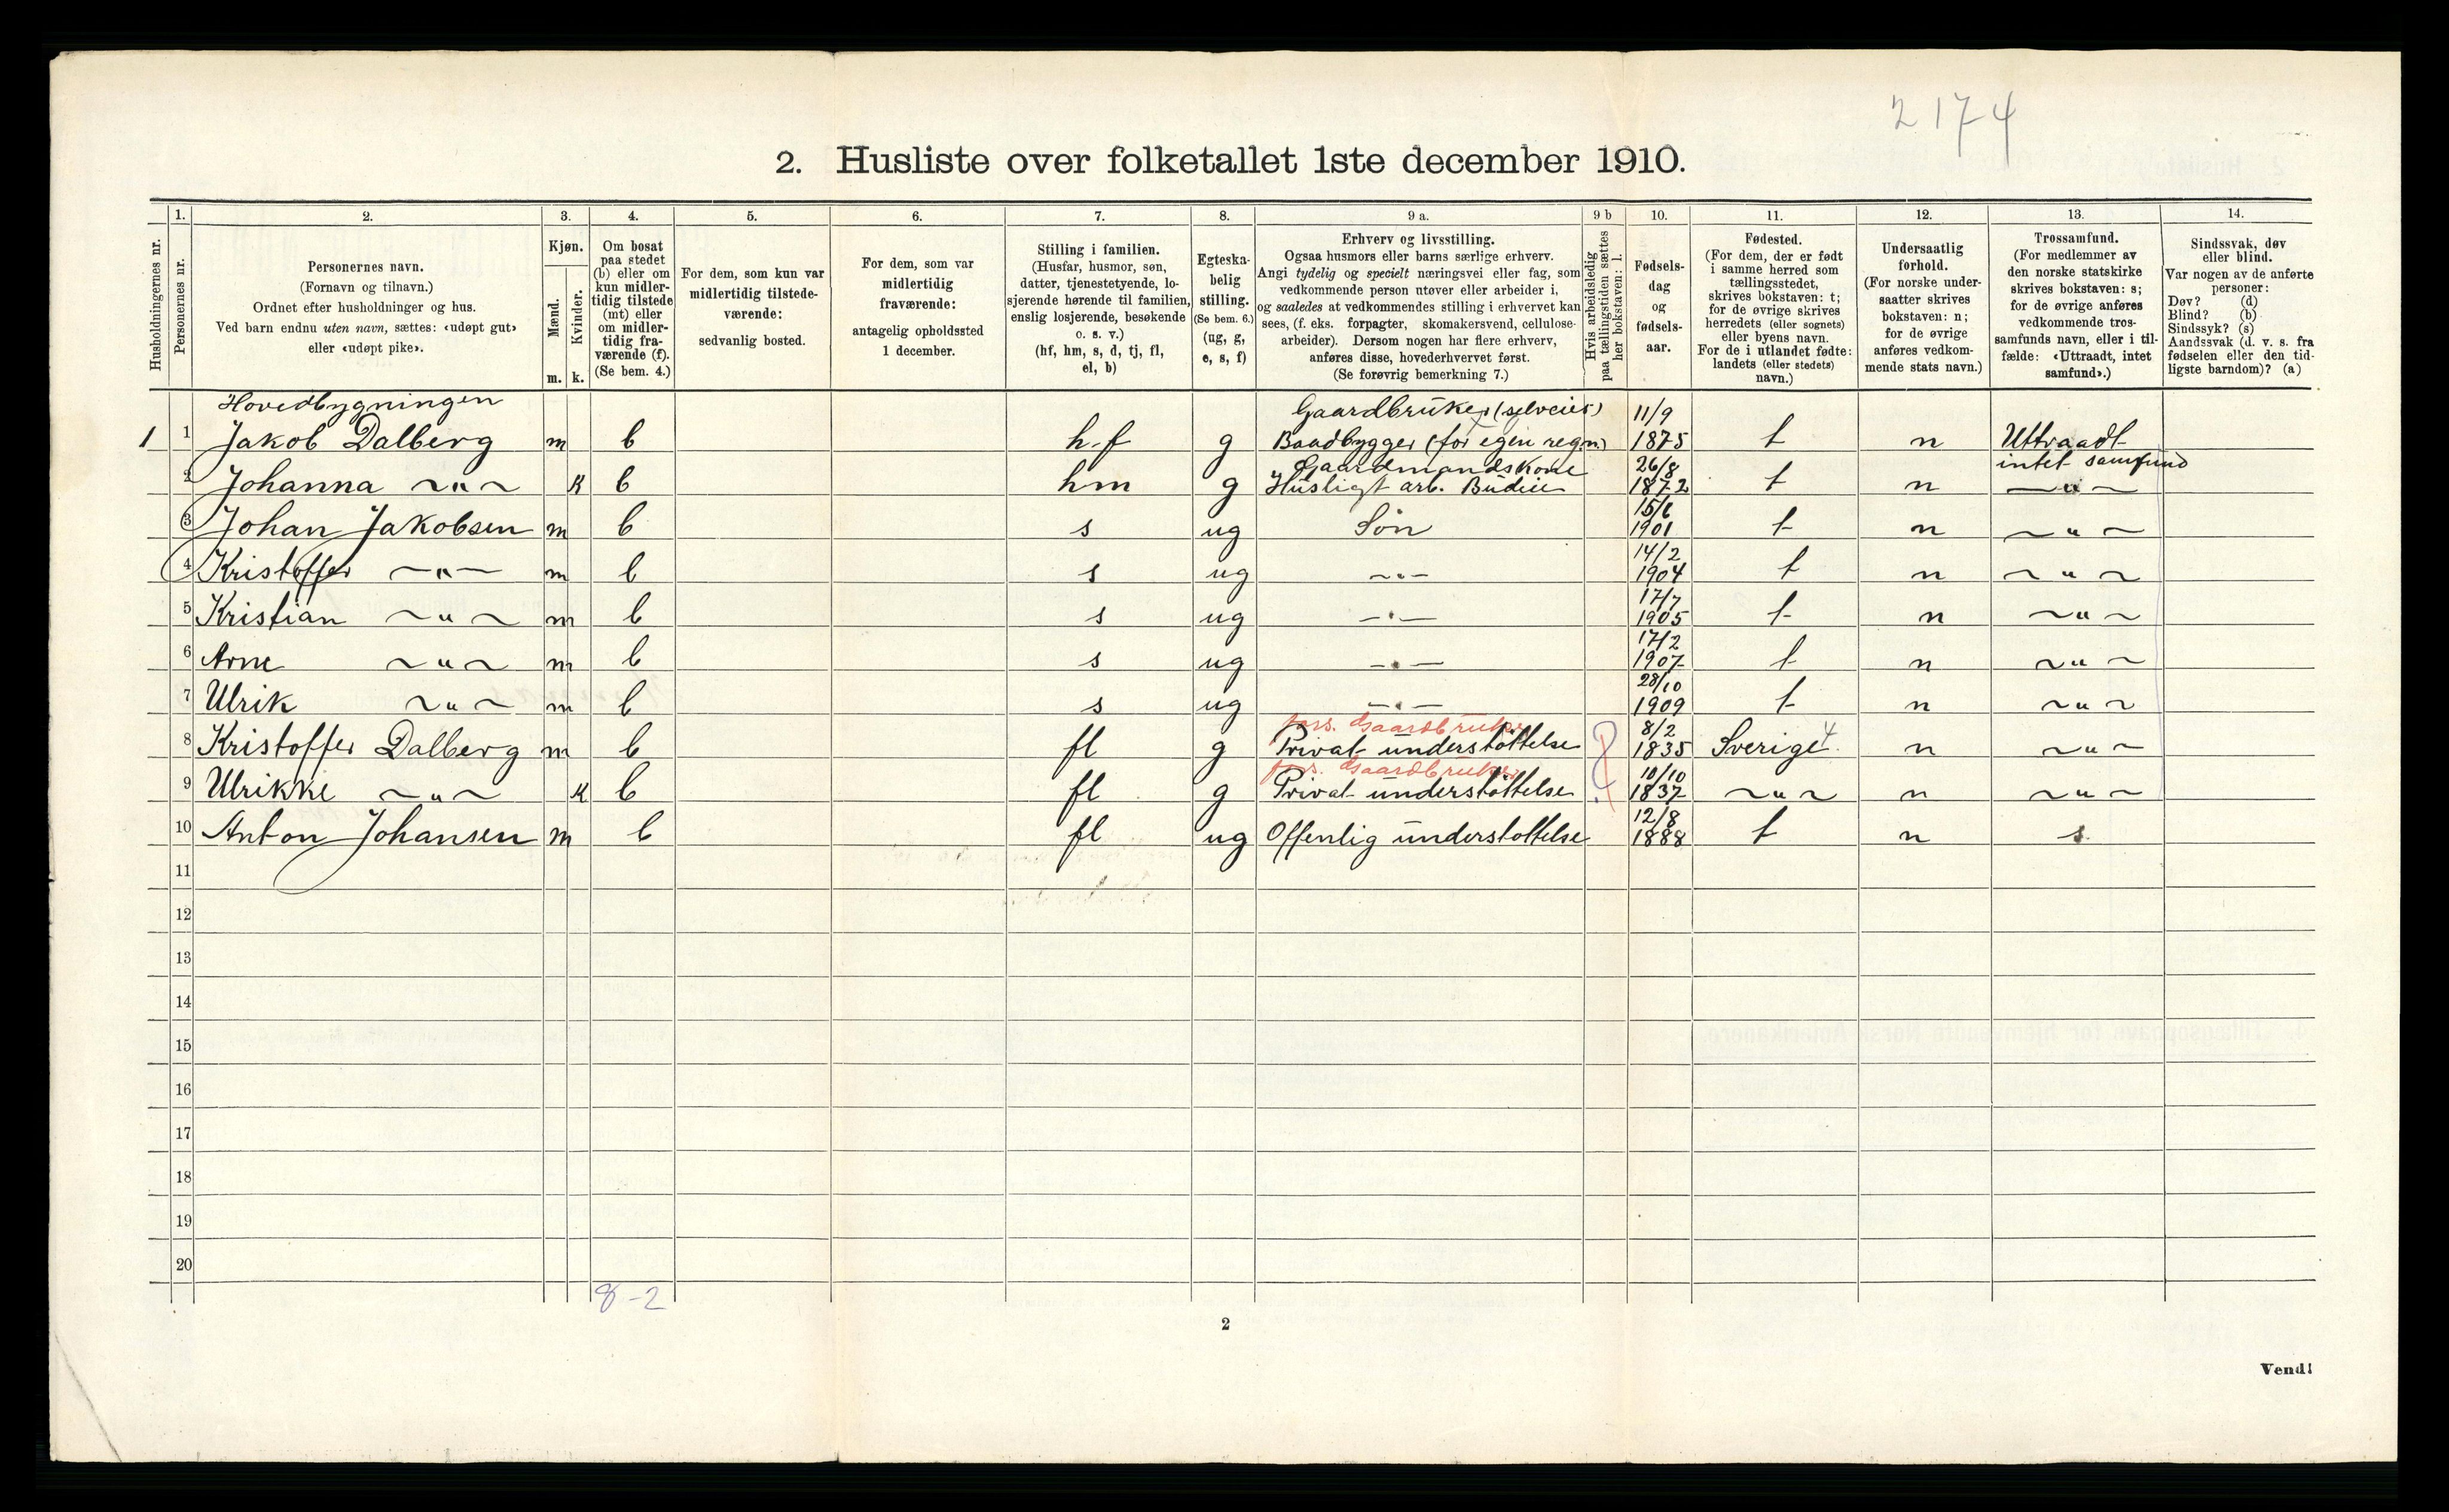 2174
2. Husliste over folketallet 1ste december 1910.
Husholdningernes nr.
1. Personernes nr.
2. Personernes navn.
(Fornavn og tilnavn.)
Ordnet efter husholdninger og hus.
Ved barn endnu uten navn, sættes: «udøpt gut»
eller «udøpt pike».
3. Kjøn.
Mænd. m.
Kvinder. k.
4. Om bosat
paa stedet
(b) eller om
kun midler-
tidig tilstede
(mt) eller
om midler-
tidig fra-
værende (f).
(Se bem. 4.)
5. For dem, som kun var
midlertidig tilstede-
værende:
sedvanlig bosted.
6. For dem, som var
midlertidig
fraværende:
antagelig opholdssted
1 december.
7. Stilling i familien.
(Husfar, husmor, søn,
datter, tjenestetyende, lo-
sjerende hørende til familien,
enslig losjerende, besøkende
o. s. v.)
(hf, hm, s, d, tj, fl,
el, b)
8. Egteska-
belig
stilling.
(Se bem. 6.)
(ug, g,
e, s, f)
9 a. Erhverv og livsstilling.
Ogsaa husmors eller barns særlige erhverv.
Angi tydelig og specielt næringsvei eller fag, som
vedkommende person utøver eller arbeider i,
og saaledes at vedkommendes stilling i erhvervet kan
sees, (f. eks. forpagter, skomakersvend, cellulose-
arbeider). Dersom nogen har flere erhverv,
anføres disse, hovederhvervet først.
(Se forøvrig bemerkning 7.)
9 b Hvis arbeidsledig
paa tællingstiden sættes
her bokstaven: l.
10. Fødsels-
dag
og
fødsels-
aar.
11. Fødested.
(For dem, der er født
i samme herred som
tællingsstedet,
skrives bokstaven: t;
for de øvrige skrives
herredets (eller sognets)
eller byens navn.
For de i utlandet fødte:
landets (eller stedets)
navn.)
12. Undersaatlig
forhold.
(For norske under-
saatter skrives
bokstaven: n;
for de øvrige
anføres vedkom-
mende stats navn.)
13. Trossamfund.
(For medlemmer av
den norske statskirke
skrives bokstaven: s;
for de øvrige anføres
vedkommende tros-
samfunds navn, eller i til-
fælde: «Uttraadt, intet
samfund».)
14. Sindssvak, døv
eller blind.
Var nogen av de anførte
personer:
Døv? (d)
Blind? (b)
Sindssyk? (s)
Aandssvak (d. v. s. fra
fødselen eller den tid-
ligste barndom)? (a)
Hovedbygningen Gaardbruker (selveier) 11/9
1 1 Jakob Dalberg m b hf g Baadbygger (for egen regn.) 1875 t n Uttraadt
intet samfund
Gaardmandskone 26/8
2 Johanna ~"~ K b hm g Husligt arb. Budeie 1872 t n —"~
15/6
3 Johan Jakobsen m b s ug Søn 1901 t n ~"~
14/2
4 Kristoffer ~"~ m b s ug ~"~ 1904 t n ~"~
17/7
5 Kristian ~"~ m b s ug —"— 1905 t n ~"~
17/2
6 Arne ~"~ m b s ug —"— 1907 t n ~"~
28/10
7 Ulrik ~"~ m b s ug —"— 1909 t n ~"~
fors. Gaardbruker 8/2
8 Kristoffer Dalberg m b fl g Privat understøttelse 1835 Sverige 4 n ~"~
fors. Gaardbruker 10/10
9 Ulrikke ~"~ K b fl g Privat understøttelse 1837 ~"~ n ~"~
12/8
10 Anton Johansen m b fl ug Offenlig understøttelse 1888 t n s
11
12
13
14
15
16
17
18
19
20
8-2
2
Vend!